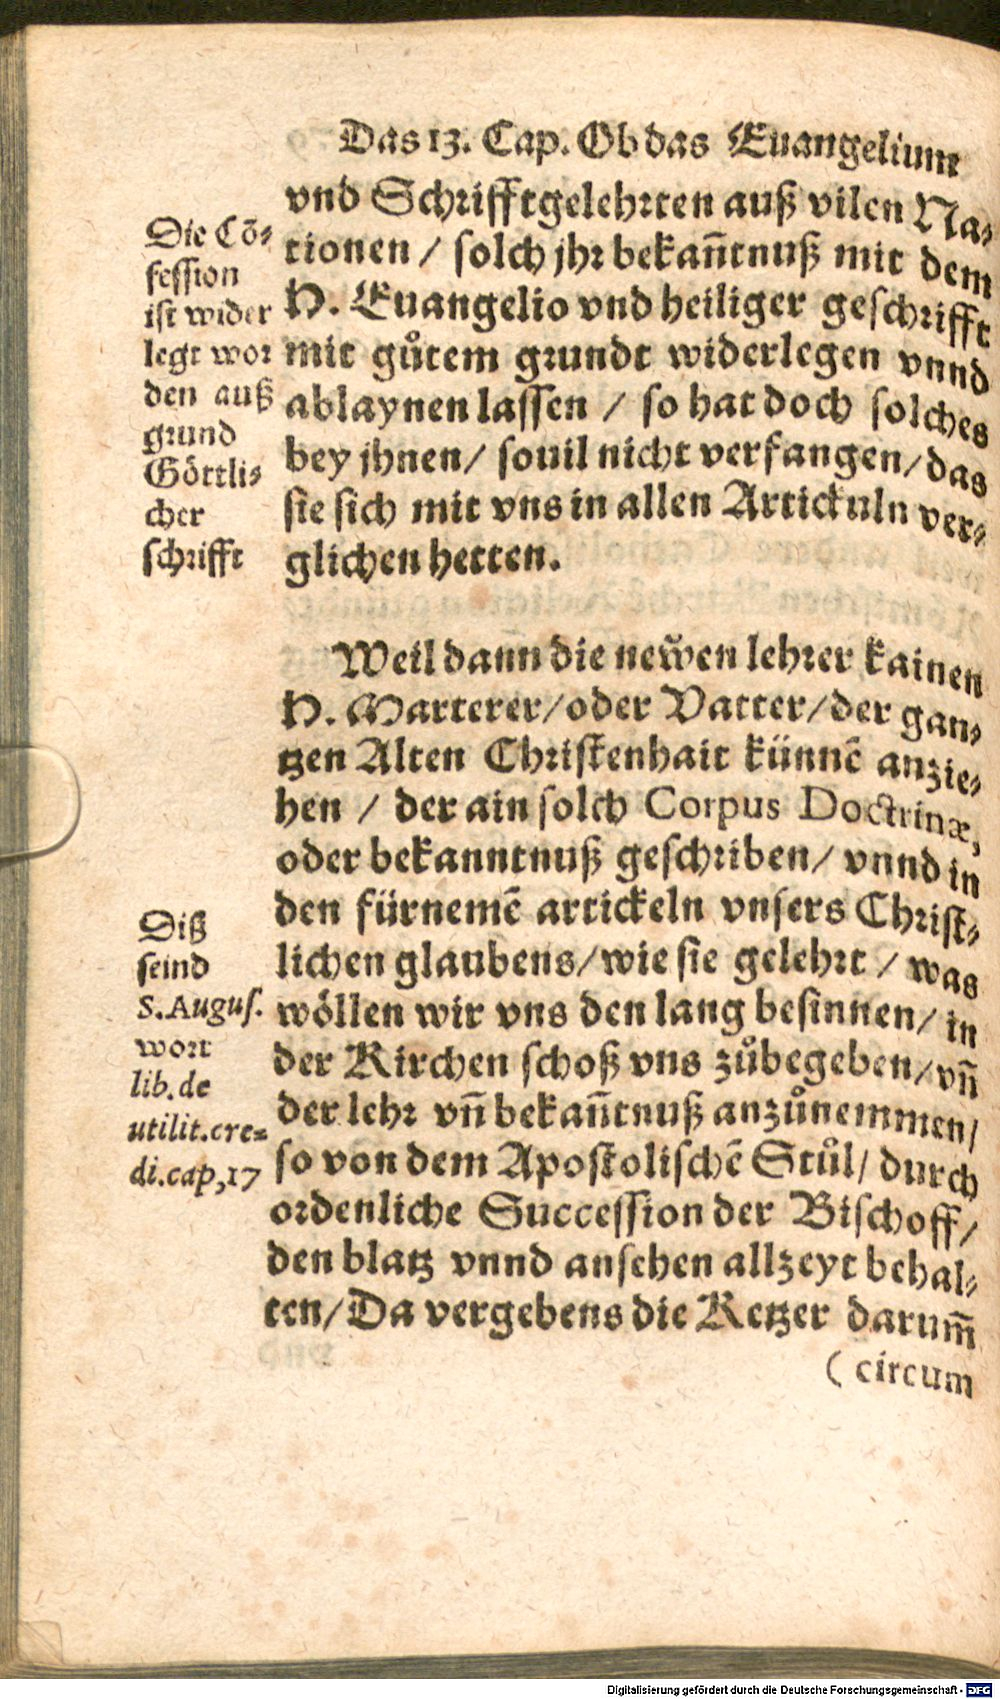 Das 13. Cap. Ob das Euangelium
vnd Schrifftgelehrten auß vilen Na-
tionen / solch jhr bekañtnuß mit dem
H. Euangelio vnd heiliger geschrifft
mit gůtem grundt widerlegen vnnd
ablaynen lassen / so hat doch solches
bey jhnen / souil nicht verfangen / das
sie sich mit vns in allen Artickuln ver-
glichen hetten.
Die Cõ-
fession
ist wider
legt wor
den auß
grund
Göttli-
cher
schrifft
Weil dann die newen lehrer kainen
H. Marterer / oder Vatter / der gan-
tzen Alten Christenhait künnē anzie-
hen / der ain solch Corpus Doctrinæ,
oder bekanntnuß geschriben / vnnd in
den fürnemē artickeln vnsers Christ-
lichen glaubens / wie sie gelehrt / was
wöllen wir vns den lang besinnen / in
der Kirchen schoß vns zůbegeben / vñ
der lehr vñ bekañtnuß anzůnemmen /
so von dem Apostolischē Stůl / durch
ordenliche Succession der Bischoff /
den blatz vnnd ansehen allzeyt behal-
ten / Da vergebens die Ketzer darum̃
Diß
seind
S. Augus.
wort
lib. de
utilit. cre-
di. cap, 17
( circum
Digitalisierung gefördert durch die Deutsche Forschungsgemeinschaft - DFG